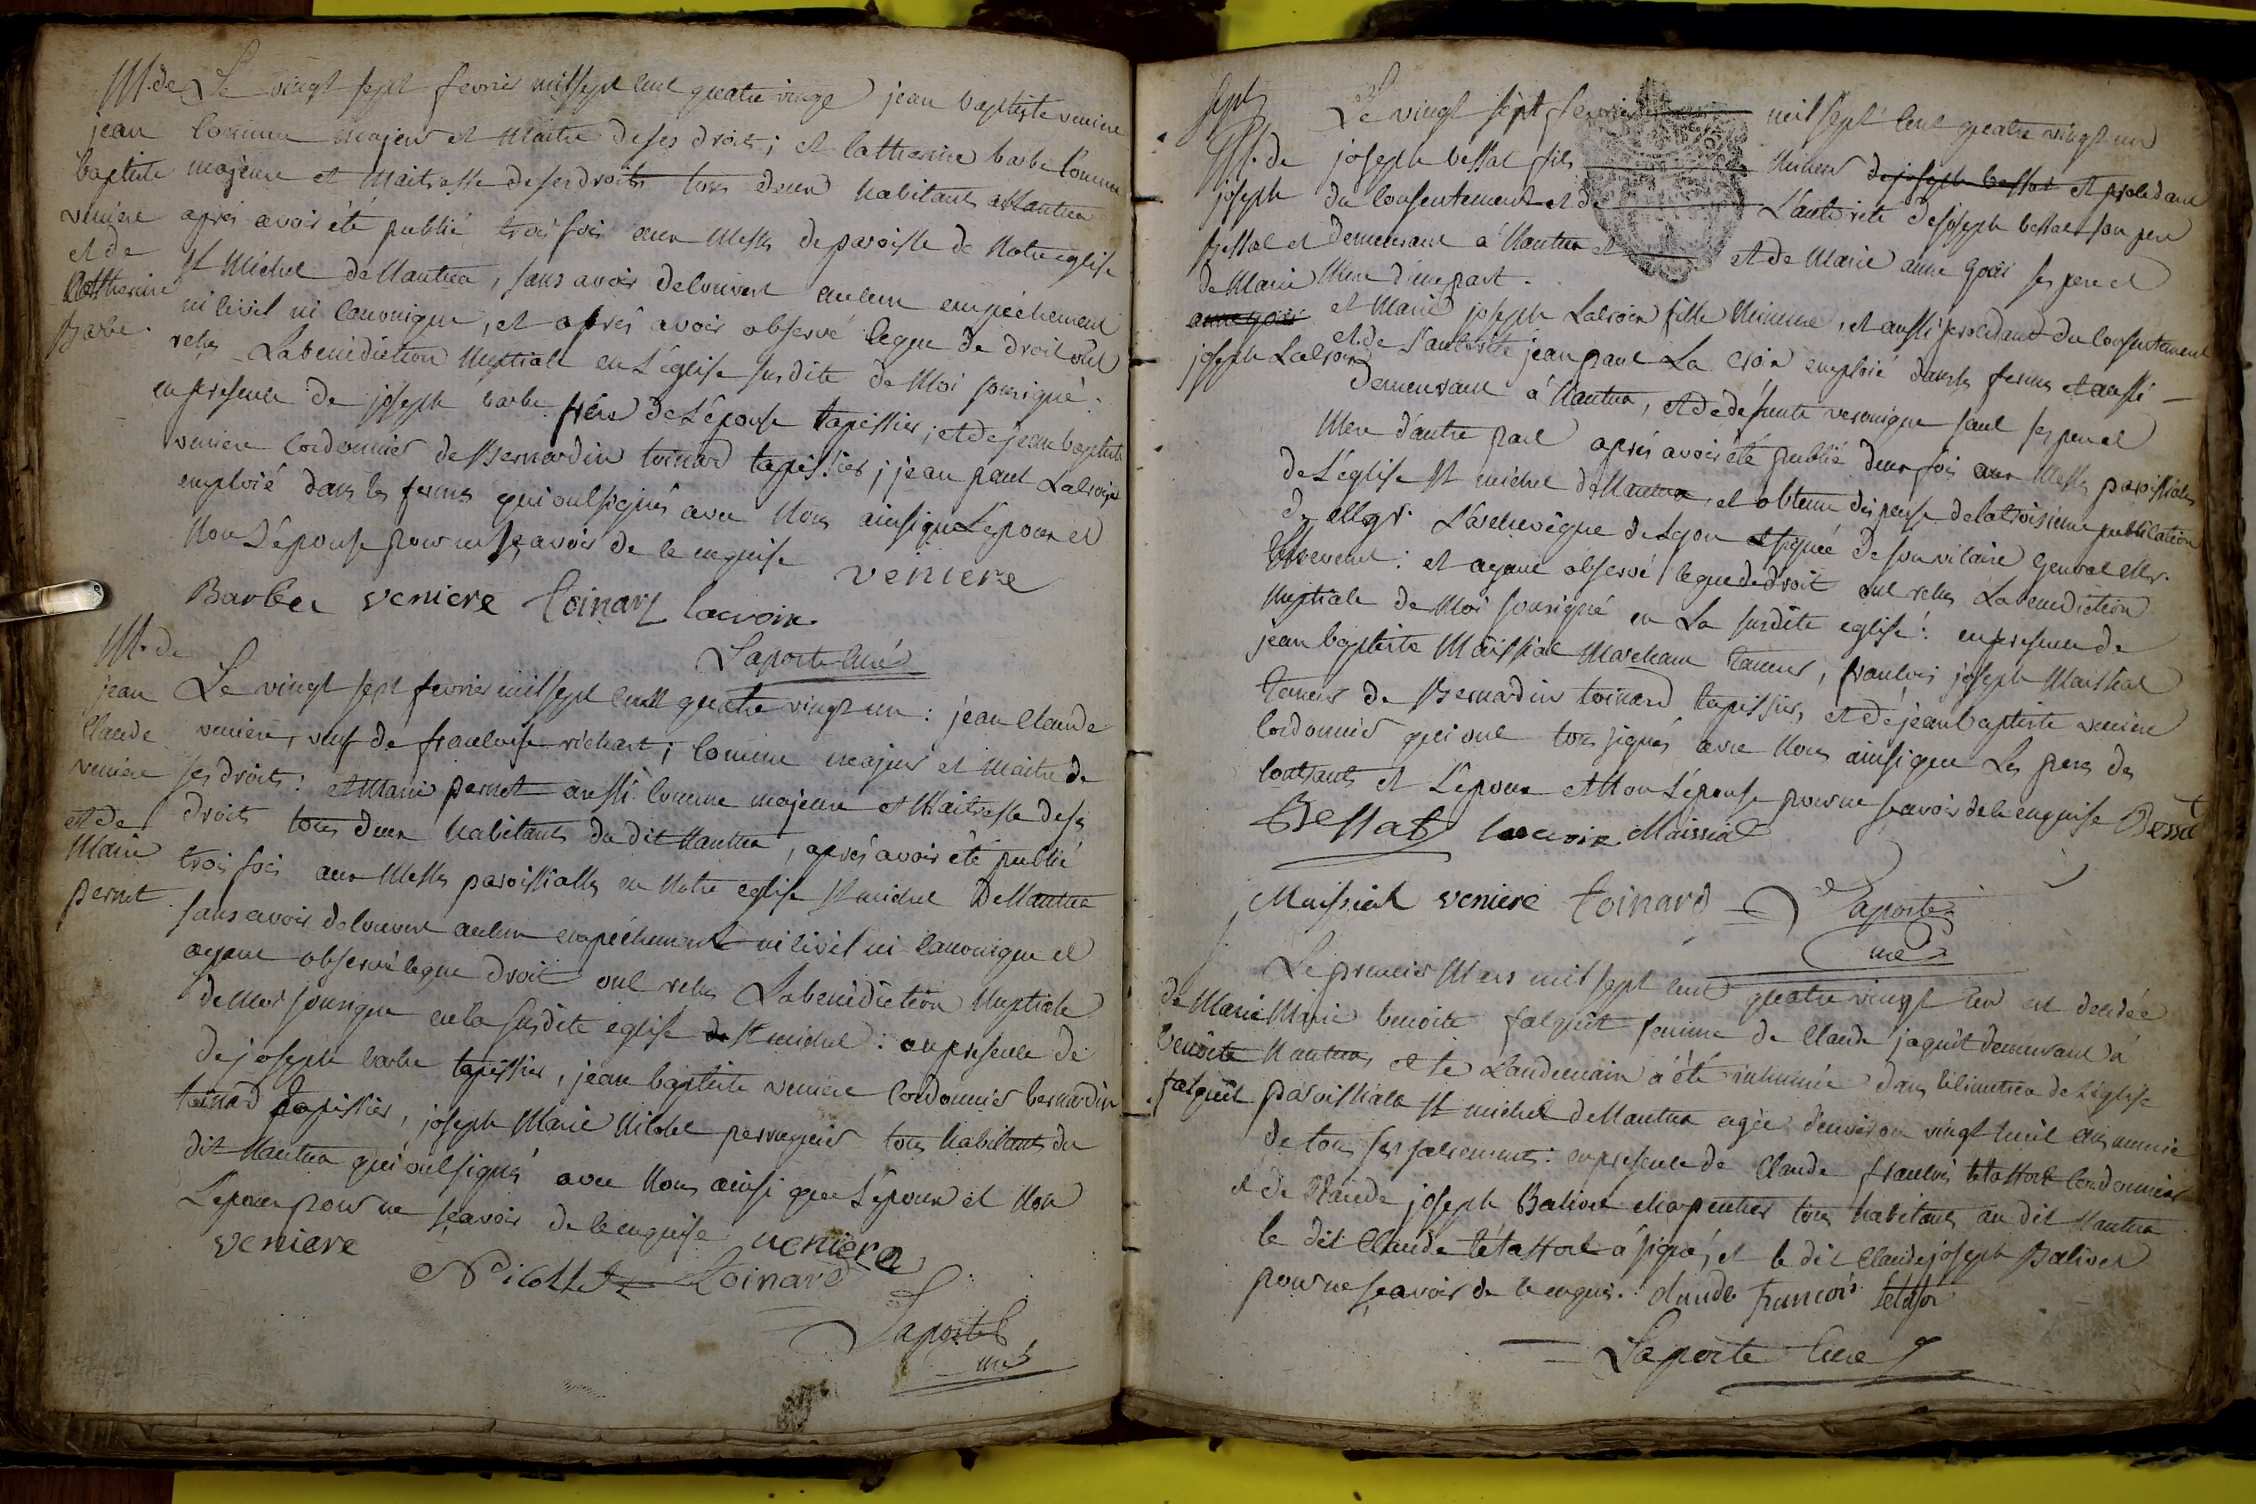 M. de
jean
baptiste
veniere
et de
Catherine
Barbe.
Le vingt sept fevrier mil sept cent quatre vingt jean baptiste veniere
comme majeur et maitre de ses droits; et catherine barbe comme
majeure et maitresse de ses droits tous deux habitants a Nantua
aprés avoir été publié trois fois aux messes de paroisse de notre eglise
st Michel de Nantua, sans avoir decouvert aucun empéchement
ni civil ni canonique, et aprés avoir observé ce que de droit ont
recus La benediction Nuptiale en L'église susdite de Moi sousigné.
en presence de joseph barbe frére de L'épouse tapissier, et de jean baptiste
veniere cordonnier de Bernardin toinard tapissier; jean paul Lacroix
emploié dans les fermes qui ont signés avec Nous ainsi que L'epoux et
Non L'épouse pour ne sçavoir de ce enquise
veniere
Barbe veniere toinard lacroix
Laporte curé
M. de
jean
Claude
veniere
et de
Marie
pernet
Le vingt sept fevrier mil sept cent quatre vingt un: jean Claude
veniere, veuf de francoise richart; comme majeur et maitre de
ses droits: et Marie pernet aussi comme majeure et Maitresse de ses
droits tous deux habitants du dit Nantua, aprés avoir été publié
trois fois aux Messes paroissialles en Notre eglise st michel De Nantua
sans avoir decouvert aucun empéchement ni civil ni canonique et
ayant observé ce que droit ont recus La benediction Nuptiale
de Moi sousigné en la susdite eglise de st michel: en presence de
de joseph barbe tapissier, jean baptiste veniere cordonnier bernardin
toinard tapissier, joseph Marie Nicolet perruquier tous habitants du
dit Nantua qui ont signés avec Nous ainsi que L'époux et Non
L'epouse pour ne sçavoir de ce enquise
veniere veniere
Nicollet toinard
Laporte
curé
sept
M. de
joseph
bessat et
de Marie
anne goüi
joseph Lacroix
Le vingt sept fevrier mil sept cent quatre vingt un
joseph bessat fils Mineur de joseph bessat et procedant
du consentement et de L'autorité de joseph bessat son pere
demeurant á Nantua et et de Marie anne goüi ses pere et
Mere d'une part.
et Marie joseph Lacroix fille Mineure, et aussi procedant du consentement
et de L'autorité jean paul La croix emploié dans les fermes et aussi
demeurant á Nantua, et de défunte veronique saul ses pere et
Mere d'autre part aprés avoir été publié deux fois aux Messes paroissiales
de L'église st michel de Nantua, et obtenu dispense de la troisieme publication
de Mgr. L'archevêque de Lyon signée de son vicaire General Mr.
et ayant observé ce que de droit ont recus La benediction
Nuptiale de Moi sousigné en La susdite eglise: en presence de
jean baptiste Maissiat Marchant taneur, francois joseph Maissiat
taneur de Bernardin toinard tapissier, et de jean baptiste veniere
cordonnier qui ont tous signés avec Nous ainsi que Les peres des
contrants et L'epoux et Non L'épouse pour ne sçavoir de ce enquise Bessat
Bessat lacroix Maissiat
Maissiat veniere toinard Laporte
curé
de Marie
benoite
falquet
Le premier Mars mil sept cent quatre vingt un est decedée
Marie benoite falquet femme de Claude jaquet demeurant á
Nantua, et le Landemain a été inhumée dans le cimetiere de L'eglise
paroissiale st michel de Nantua agée d'environ vingt huit ans munie
de tous ses sacrements: en presence de Claude francois tetaffort cordonnier
et de Claude joseph Balivet charpentier tous habitants au dit Nantua
le dit Claude tétaffort á signé, et le dit Claude joseph Balivet
pour ne sçavoir de ce enquis. claude francois tetafor
Laporte Curé